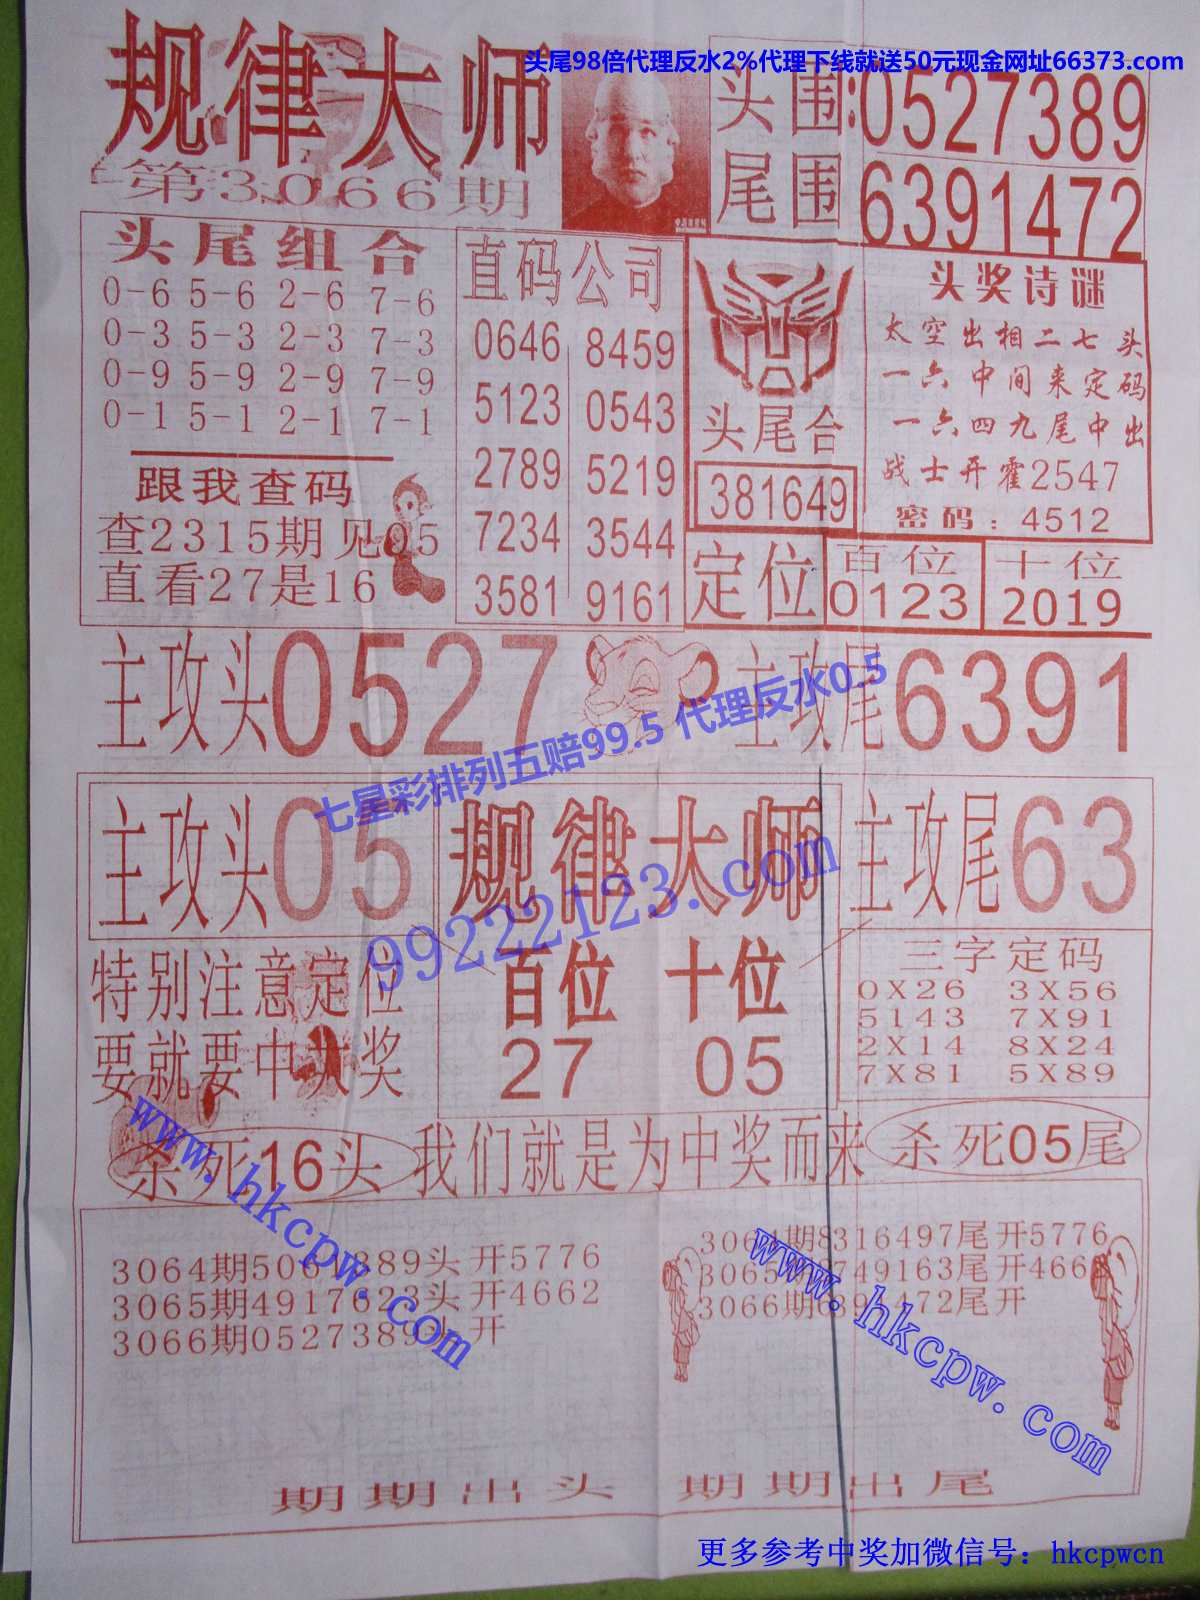 头尾98倍代理反水2%代理下线就送50元现金网址66373.com
规律大师
第3066期
头围:0527389
尾围6391472
头尾组合
0-6 5-6 2-6 7-6
0-3 5-3 2-3 7-3
0-9 5-9 2-9 7-9
0-1 5-1 2-1 7-1
跟我查码
查2315期见05
直看27是16
直码公司
0646 8459
5123 0543
2789 5219
7234 3544
3581 9161
头尾合
381649
头奖诗谜
太空出相二七头
一六中间来定码
一六四九尾中出
战士开霍2547
密码:4512
定位
百位
0123
十位
2019
主攻头0527
主攻尾6391
七星彩排列五赔99.5 代理反水0.5
主攻头05
规律大师
主攻尾63
99222123.com
特别注意定位
要就要中大奖
百位 十位
27 05
三字定码
0X26 3X56
5143 7X91
2X14 8X24
7X81 5X89
杀死16头
我们就是为中奖而来
杀死05尾
www.hkcpw.com
3064期506 389头开5776
3065期4917623头开4662
3066期0527389头开
3064期8316497尾开5776
3065 749163尾开466
3066期6391472尾开
www.hkcpw.com
期期出头 期期出尾
更多参考中奖加微信号：hkcpwcn